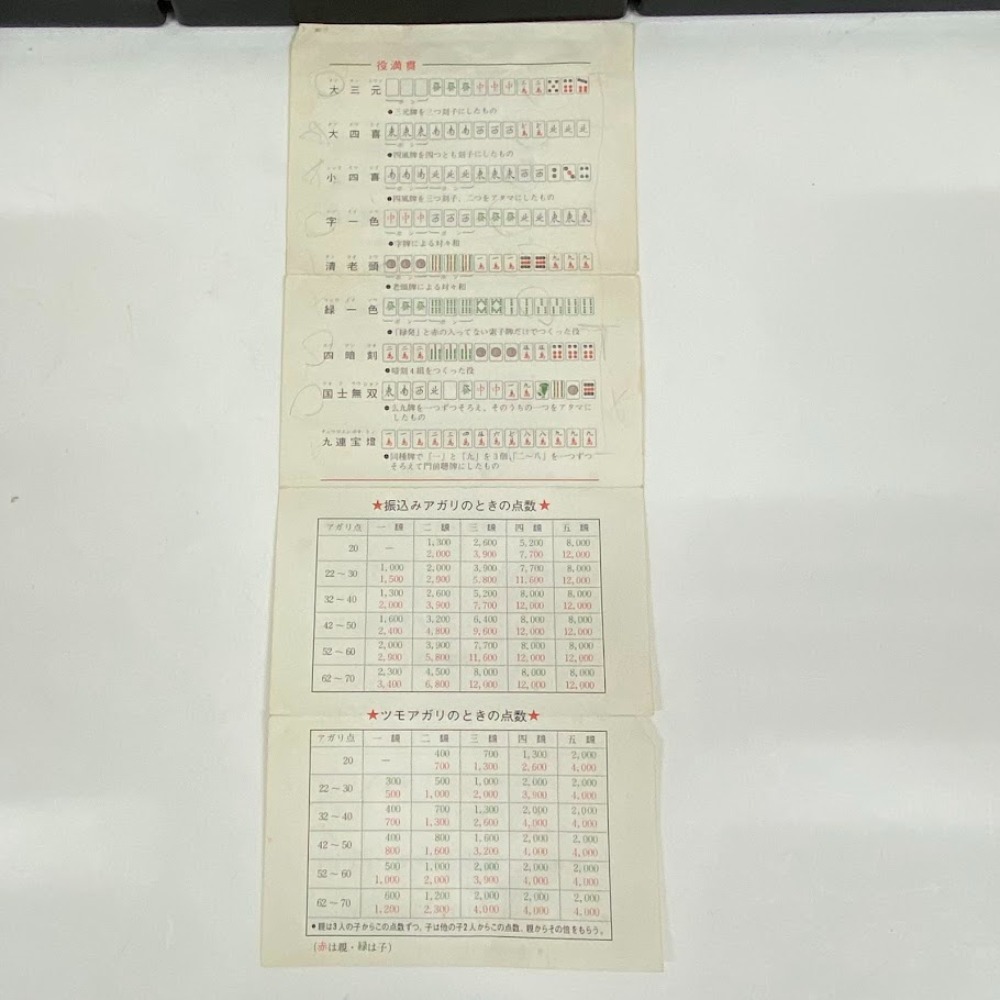 役満貫
大三元
●三元牌を三つ刻子にしたもの
大四喜
●四風牌を四つとも刻子にしたもの
小四喜
●四風牌を三つ刻子、二つをアタマにしたもの
字一色
●字牌による対々和
清老頭
●老頭牌による対々和
緑一色
●「緑發」と赤の入ってない索子牌だけでつくった役
四暗刻
●暗刻4組をつくった役
国士無双
●么九牌を一つずつそろえ、そのうちの一つをアタマに
したもの
九連宝燈
●同種牌で「一」と「九」を3個、「二〜八」を一つずつ
そろえて門前聴牌にしたもの
★振込みアガリのときの点数★
アガリ点 一飜 二飜 三飜 四飜 五飜
20 — 1,300 2,600 5,200 8,000
2,000 3,900 7,700 12,000
22〜30 1,000 2,000 3,900 7,700 8,000
1,500 2,900 5,800 11,600 12,000
32〜40 1,300 2,600 5,200 8,000 8,000
2,000 3,900 7,700 12,000 12,000
42〜50 1,600 3,200 6,400 8,000 8,000
2,400 4,800 9,600 12,000 12,000
52〜60 2,000 3,900 7,700 8,000 8,000
2,900 5,800 11,600 12,000 12,000
62〜70 2,300 4,500 8,000 8,000 8,000
3,400 6,800 12,000 12,000 12,000
★ツモアガリのときの点数★
アガリ点 一飜 二飜 三飜 四飜 五飜
20 — 400 700 1,300 2,000
700 1,300 2,600 4,000
22〜30 300 500 1,000 2,000 2,000
500 1,000 2,000 3,900 4,000
32〜40 400 700 1,300 2,000 2,000
700 1,300 2,600 4,000 4,000
42〜50 400 800 1,600 2,000 2,000
800 1,600 3,200 4,000 4,000
52〜60 500 1,000 2,000 2,000 2,000
1,000 2,000 3,900 4,000 4,000
62〜70 600 1,200 2,000 2,000 2,000
1,200 2,300 4,000 4,000 4,000
●親は3人の子からこの点数ずつ、子は他の子2人からこの点数、親からその倍をもらう。
(赤は親・緑は子)